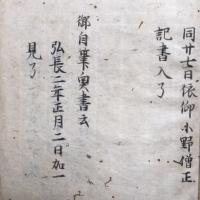 同廿七日依仰小野僧正
記書入了
御自筆奥書云
弘長二年正月二日加一
見了